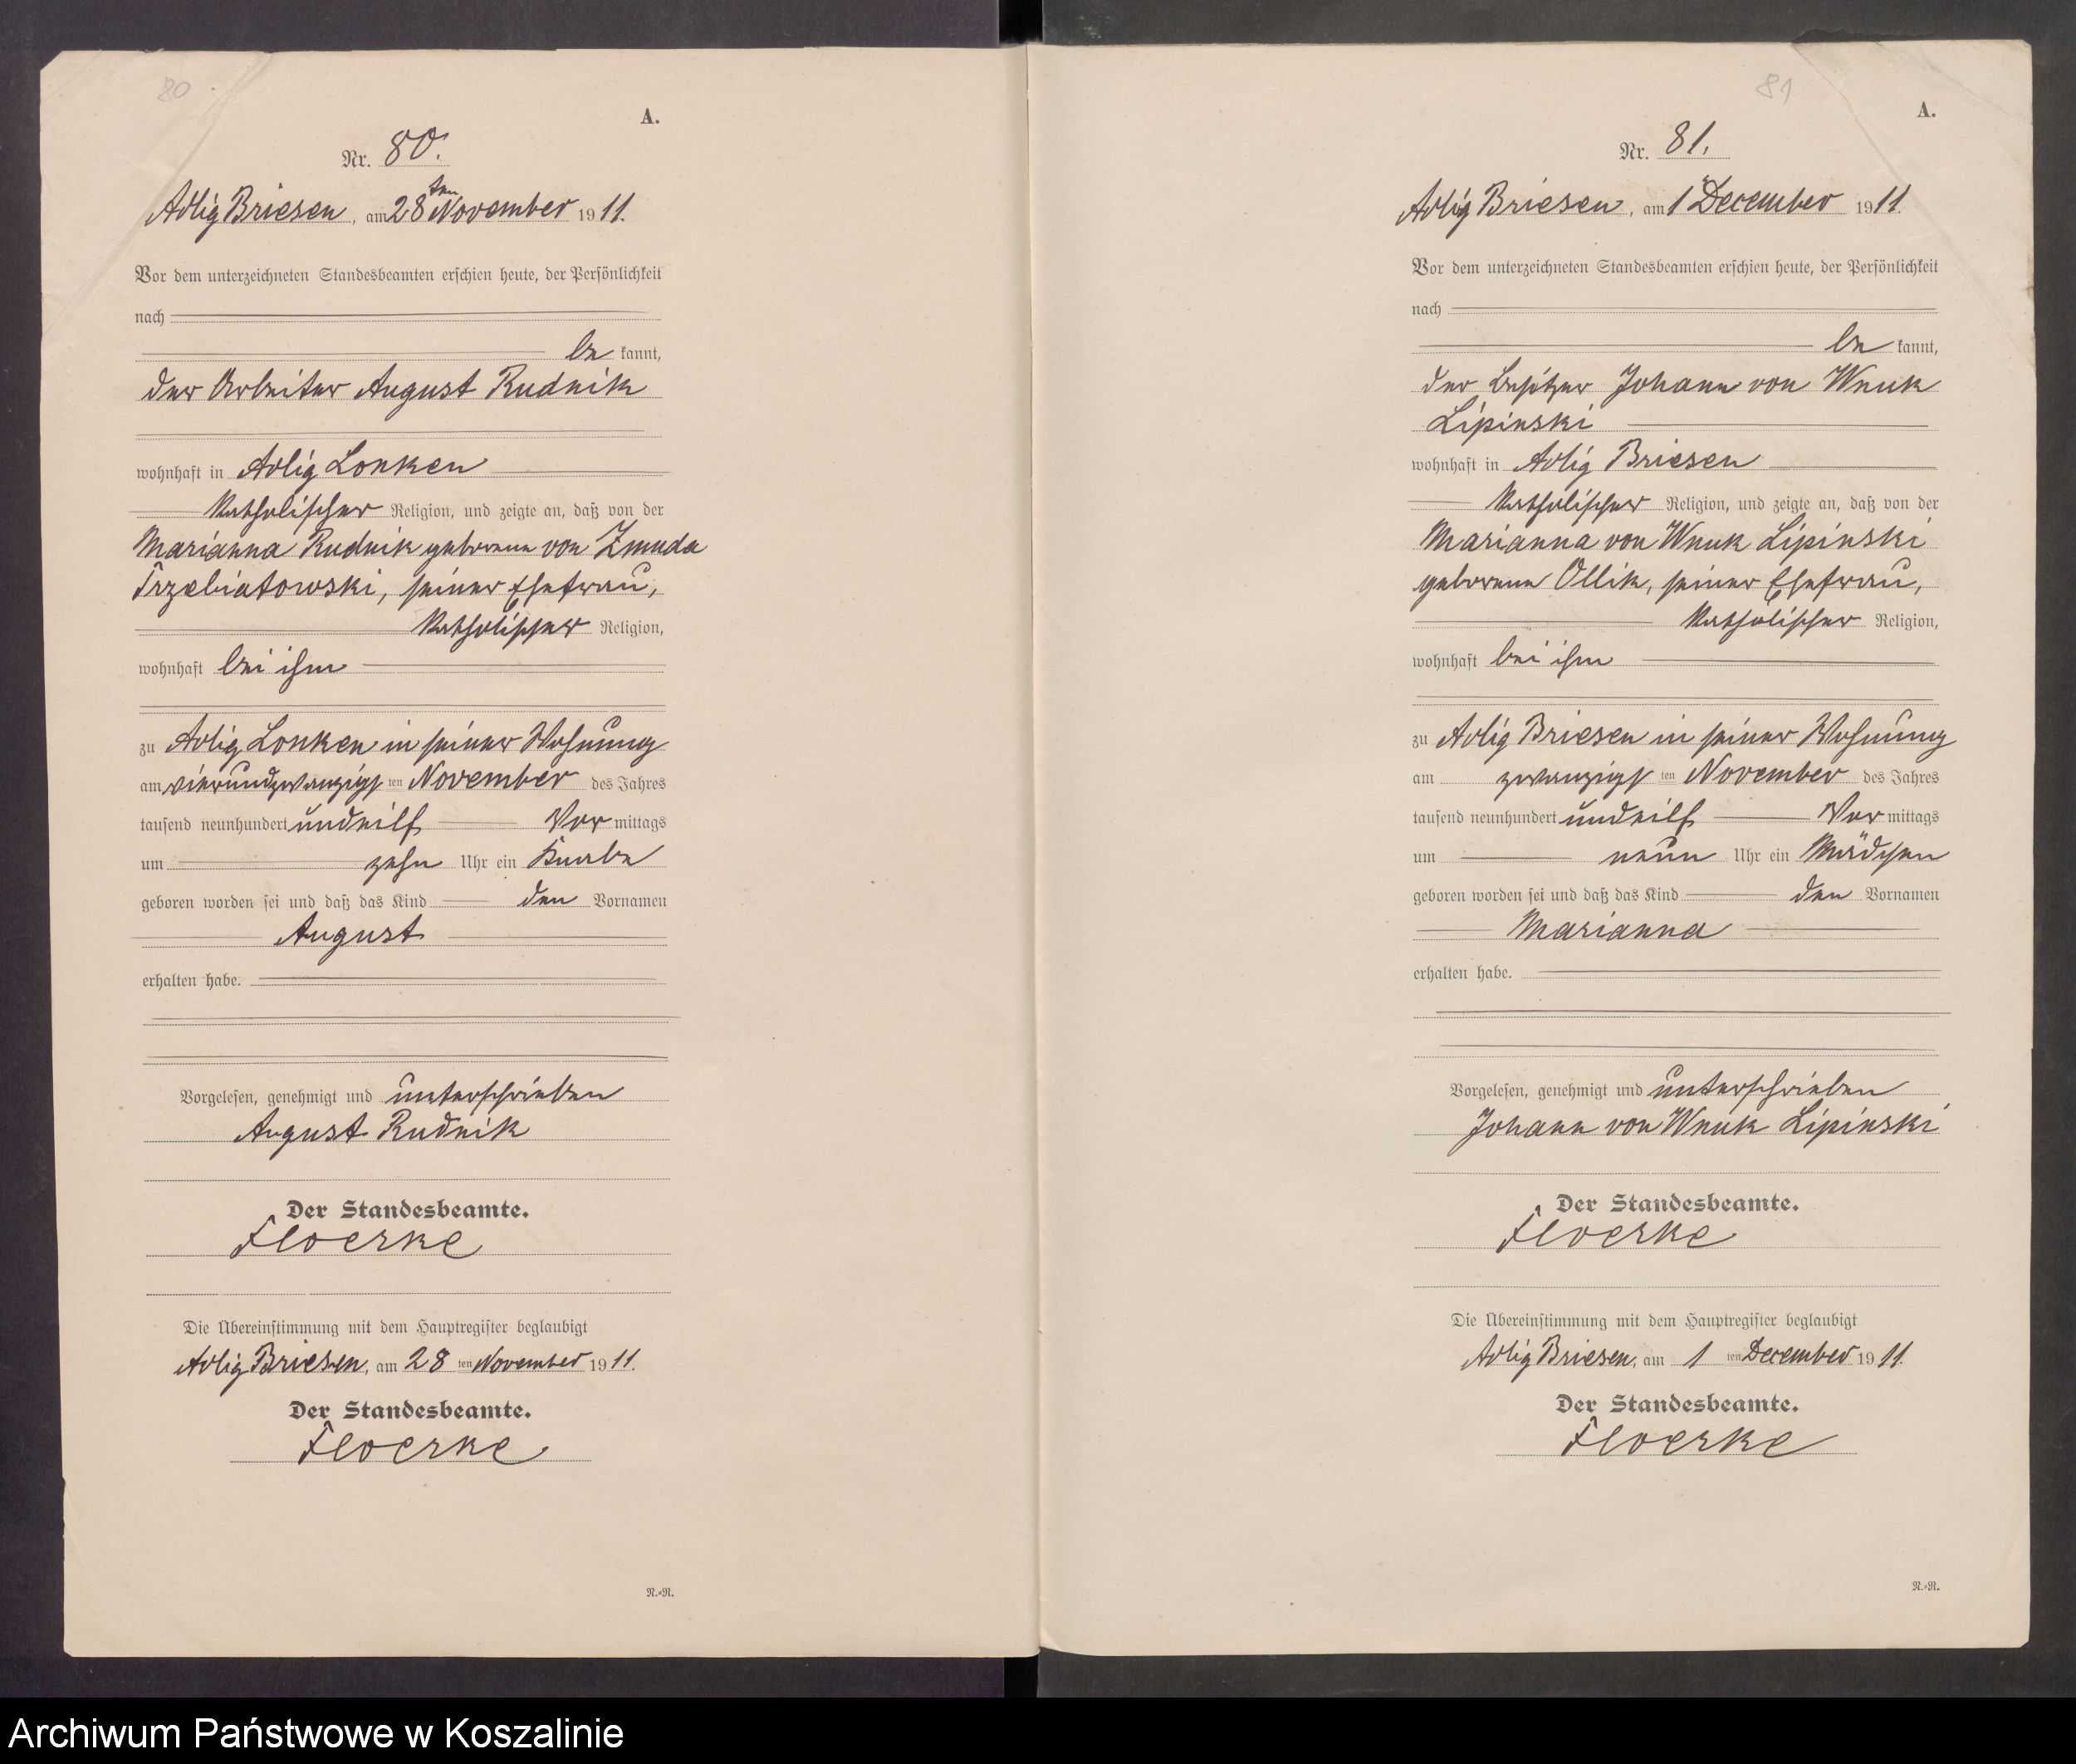 80
A.
Nr. 80.
Adlig Briesen, am 28ten November 1911.
Vor dem unterzeichneten Standesbeamten erschien heute, der Persönlichkeit
nach
be kannt,
der Arbeiter August Rudnik
wohnhaft in Adlig Lonken
katholischer Religion, und zeigte an, daß von der
Marianna Rudnik geborene von Zmuda
Trzebiatowski, seiner Ehefrau,
katholischer Religion,
wohnhaft bei ihm
zu Adlig Lonken in seiner Wohnung
am vierundzwanzigsten November des Jahres
tausend neunhundert undeilf Vor mittags
um zehn Uhr ein Knabe
geboren worden sei und daß das Kind den Vornamen
August
erhalten habe.
Vorgelesen, genehmigt und unterschrieben
August Rudnik
Der Standesbeamte.
Floerke
Die Übereinstimmung mit dem Hauptregister beglaubigt
Adlig Briesen, am 28 ten November 1911.
Der Standesbeamte.
Floerke
N.=N.
81
A.
Nr. 81.
Adlig Briesen, am 1 December 1911.
Vor dem unterzeichneten Standesbeamten erschien heute, der Persönlichkeit
nach
be kannt,
der Besitzer Johann von Wnuk
Lipinski
wohnhaft in Adlig Briesen
katholischer Religion, und zeigte an, daß von der
Marianna von Wnuk Lipinski
geborene Ollik, seiner Ehefrau,
katholischer Religion,
wohnhaft bei ihm
zu Adlig Briesen in seiner Wohnung
am zwanzigsten November des Jahres
tausend neunhundert undeilf Vor mittags
um neun Uhr ein Mädchen
geboren worden sei und daß das Kind den Vornamen
Marianna
erhalten habe.
Vorgelesen, genehmigt und unterschrieben
Johann von Wnuk Lipinski
Der Standesbeamte.
Floerke
Die Übereinstimmung mit dem Hauptregister beglaubigt
Adlig Briesen, am 1 ten December 1911.
Der Standesbeamte.
Floerke
N.=N.
Archiwum Państwowe w Koszalinie